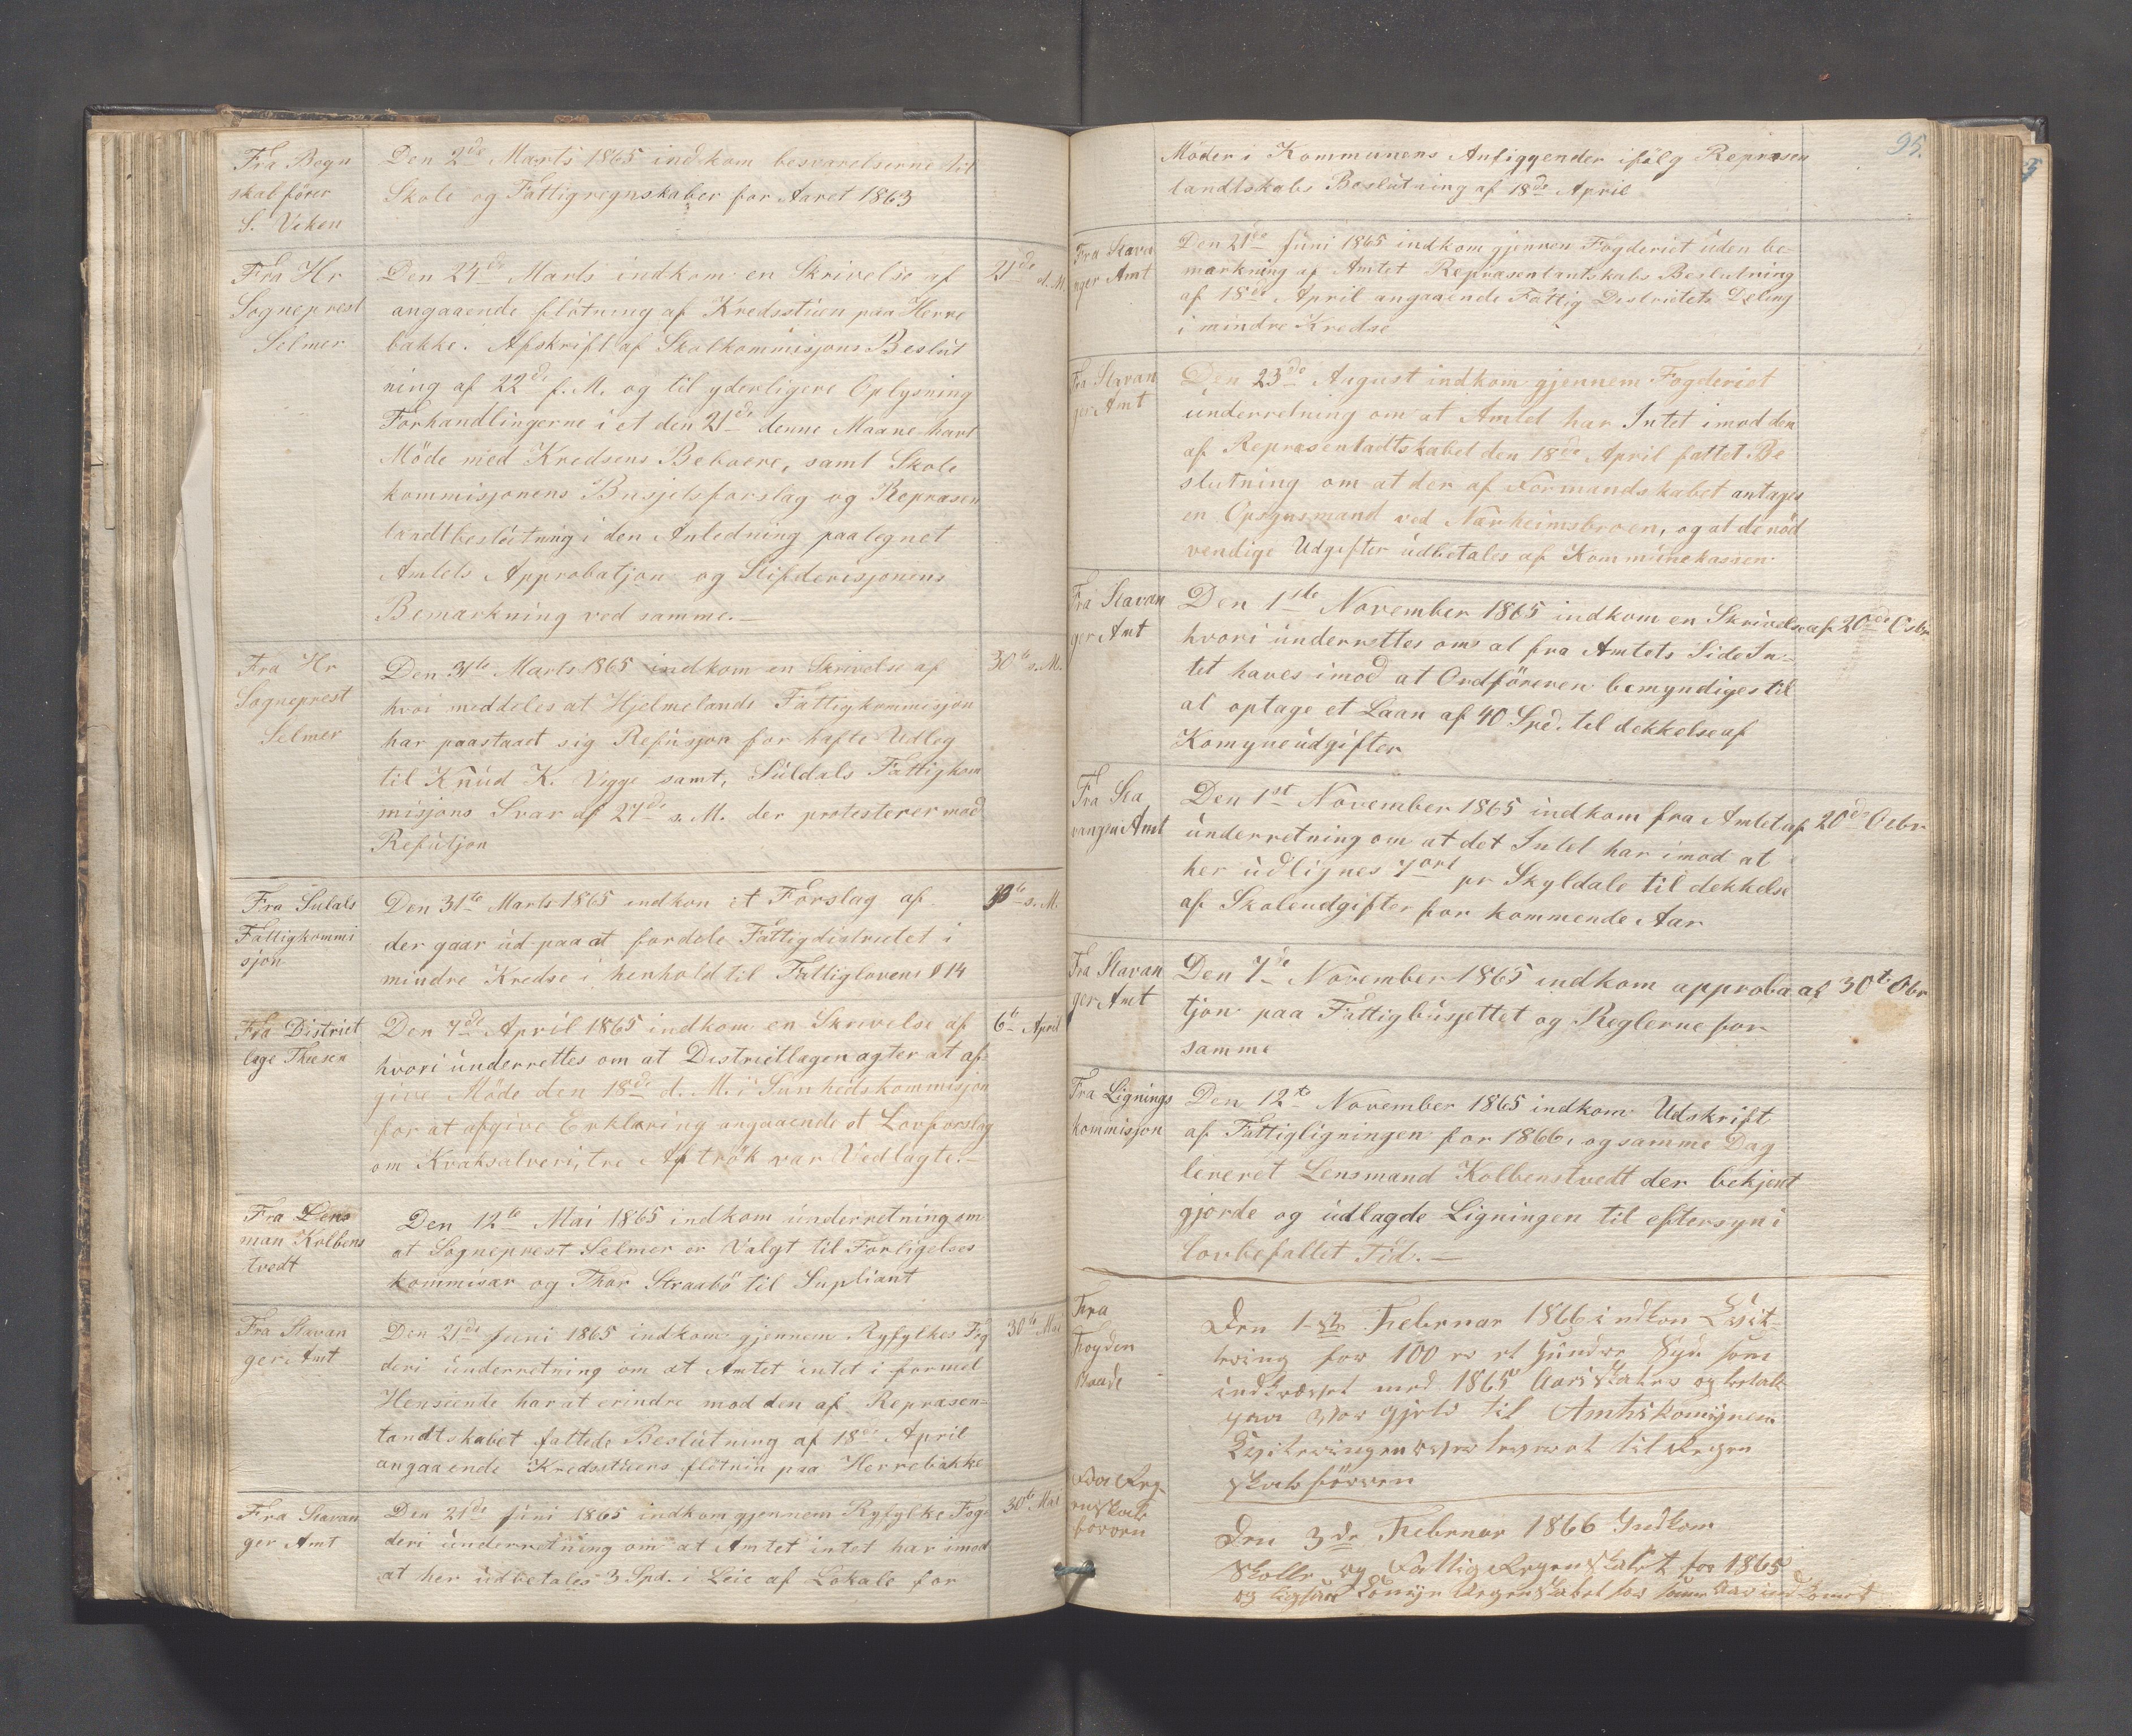 Fra Regn
skabfører
S. Veken
Den 2de Marts 1865 indkom besvarelserne til
Skole og Fattigregnskaber for Aaret 1863
Fra Hr
Sogneprest
Selmer
Den 24de Marts indkom en Skrivelse af
21de d. M.
angaaende flötning af Kredsstuen paa Herre
bakke. Afskrift af Skolkommisjons Beslut
ning af 22de f. M. og til yderligere Oplysning
Forhandlingerne i et den 21de denne Maane havt
Möde med Kredsens Beboere, samt Skole
kommisjonens Busjetsforslag og Repræsen
tandtbeslutning i den Anledning paategnet
Amtets Approbatjon og Stifderisjonens
Bemærkning ved samme.—
Fra Hr
Sogneprest
Selmer
Den 31te Marts 1865 indkom en Skrivelse af
30te s. M.
hvori meddeles at Hjelmelands Fattigkommisjon
har paastaaet sig Refusjon for hafte Udleg
til Knud K. Vigge samt, Suldals Fattigkom
misjons Svar af 27de s. M. der protesterer mod
Refutjon
Fra Sulals
Fattigkommi
sjon
Den 31te Marts 1865 indkon et Forslag af
30te s. M.
der gaar ud paa at fordele Fattigdistrictet i
mindre Kredse i henhold til Fattiglovens § 14
Fra District
lege Thesen
Den 7de April 1865 indkom en Skrivelse af
6te April
hvori underrettes om at Districtlagen agter at af-
give Möde den 18de d. M. i Sunhedskommisjon
for at afgive Erklæring angaaende et Lovforslag
om Kvaksalveri, tre Aftrök var Vedlagte.
Fra Lens
man Kolbens
tvedt
Den 12te Mai 1865 indkom underretning om
at Sogneprest Selmer er Valgt til Forligelses
kommisær og Thor Straabö til Supliant
Fra Stavan
ger Amt
Den 21de Juni 1865 indkom gjennem Ryfylkes Fog
30te Mai
deri underretning om at Amtet intet i formel
Henseende har at erindre mod den af Repræsen-
tandtskabet fattede Beslutning af 18de April
angaaende Kredsstuens flötnin paa Herrebakke
Fra Stavan
ger Amt
Den 21de Juni 1865 indkom gjennem Ryfylke Fog-
30te Mai
deri underretning om at Amtet intet har imod
at her udbetales 3 Spd. i Leie af Lokale for
95.
Möder i Kommunens Anliggender ifölg Repræsen
tandtskabs Beslutning af 18de April
Fra Stava
nger Amt
Den 21de Juni 1865 indkom gjennen Fogderiet uden be-
mærkning af Amtet Repræsentantskabs Beslutning
af 18de April angaaende Fattig Districtets Deling
i mindre Kredse
Fra Stavan
ger Amt
Den 23de August indkom gjennem Fogderiet
underretning om at Amtet har Intet imod den
af Repræsentadtskabet den 18de April fattet Be
slutning om at der af Formandskabet antages
en Opsynsmand ved Nærheimsbroen, og at de nöd
vendige Udgifter udbetales af Kommunekassen
Fra Stavan
ger Amt
Den 1ste November 1865 indkom en Skrivelse af 20de Osbr
hvori underrettes om at fra Amtets Side In-
tet haves imod at Ordföreren bemyndiges til
at optage et Laan af 40 Spd. til dekkelse af
Komyneudgifter
Fra Sta
vanger Amt
Den 1st November 1865 indkom fra Amtet af 20de Ocbr
underretning om at det Intet har imod at
her udlignes 7 ort pr Skyldale til dekkelse
af Skoleudgifter for kommende Aar
Fra Stavan
ger Amt
Den 7de November 1865 indkom approba af 30te Obr
tjon paa Fattigbusjettet og Reglerne for
samme
Fra Lignings
kommisjon
Den 12te November 1865 indkom Udskrift
af Fattigligningen for 1866, og samme Dag
leveret Lensmand Kolbenstvedt der bekjent
gjorde og udlagde Ligningen til eftersyn i
lovbefallet Tid.—
Fra
Fogden
Den 1ste Februar 1866 indkon Qvit-
tering for 100 er et hundre Spd. som
indkrævet med 1865 Aars Skatter og
gjeld til Amtskomynen
Qviteringen leveret til Regen
skabsföreren
Fra Reg
enskabs
föreren
Den 3de Februar 1866 Indkom
Skolle og Fattig Regenskabet for 1865
og ligesaa Komyn Regenskabet for samme Aar indkomet